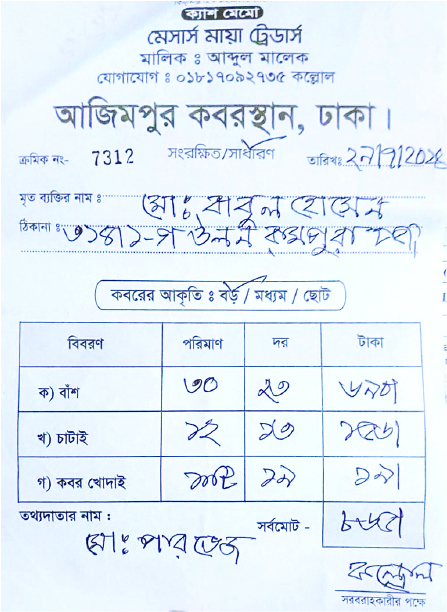 ক্যাশ মেমো
মেসার্স মায়া ট্রেডার্স
মালিক : আব্দুল মালেক
যোগাযোগ : ০১৮১৭০৯২৭৩৫ কল্লোল
আজিমপুর কবরস্থান, ঢাকা।
ক্রমিক নং- 7312 সংরক্ষিত/সাধারণ তারিখঃ
মৃত ব্যক্তির নাম : মো: বাবুল হোসেন
ঠিকানা :
কবরের আকৃতি : বড় / মধ্যম / ছোট
বিবরণ পরিমাণ দর টাকা
ক) বাঁশ ৩০ ২৩ ৬৯০/
খ) চাটাই ১২ ১৩ ১৫৬/
গ) কবর খোদাই
তথ্যদাতার নাম : সর্বমোট -
মো: পারভেজ
কল্লোল
সরবরাহকারীর পক্ষে